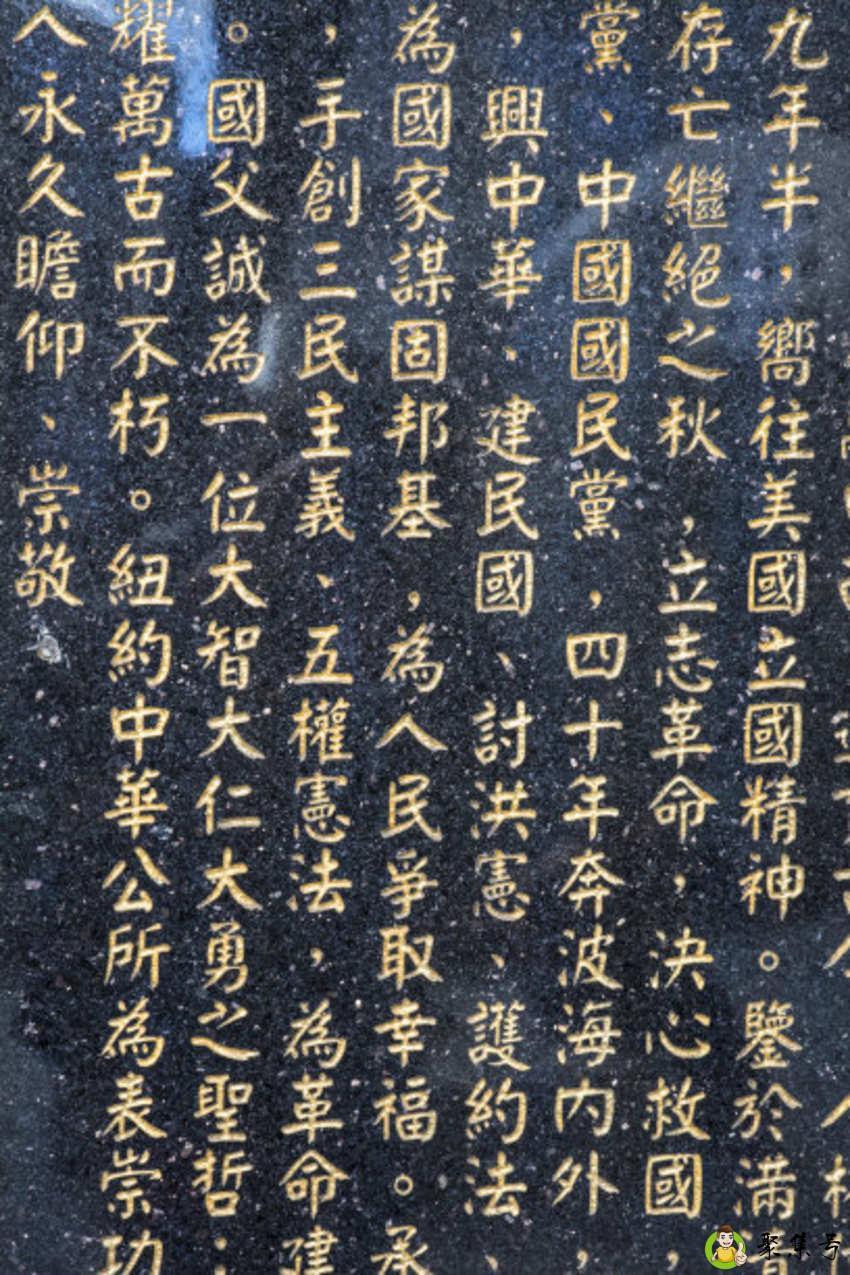 九年半，嚮往美國立國精神。鑒於滿清
存亡繼絕之秋，立志革命，決心救國，
黨、中國國民黨，四十年奔波海內外，
，興中華、建民國、討洪憲、護約法、
為國家謀固邦基，為人民爭取幸福。承
，手創三民主義、五權憲法，為革命建
。國父誠為一位大智大仁大勇之聖哲；
耀萬古而不朽。紐約中華公所為表崇功
人永久瞻仰、崇敬
聚集号